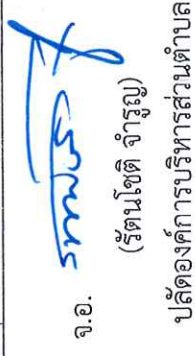 จ.อ.
(รัตนโชติ จำรูญ)
ปลัดองค์การบริหารส่วนตำบล